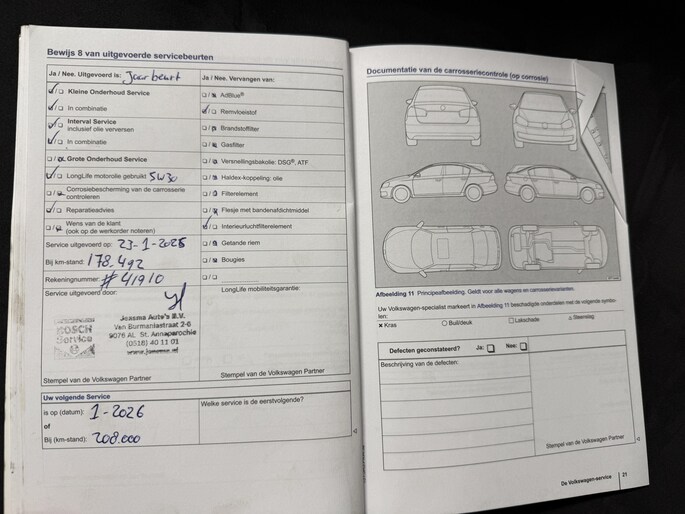 Bewijs 8 van uitgevoerde servicebeurten
Ja / Nee. Uitgevoerd is: Jaar beurt
Kleine Onderhoud Service
In combinatie
Interval Service
inclusief olie verversen
In combinatie
Grote Onderhoud Service
LongLife motorolie gebruikt 5W30
Corrosiebescherming van de carrosserie
controleren
Reparatieadvies
Wens van de klant
(ook op de werkorder noteren)
Service uitgevoerd op: 23-1-2025
Bij km-stand: 178.492
Rekeningnummer: # 41910
Service uitgevoerd door:
BOSCH
Service
Jeasma Auto's B.V.
Van Burmaniastraat 2-6
9076 AL St. Annaparochie
(0518) 40 11 01
Stempel van de Volkswagen Partner
Ja / Nee. Vervangen van:
AdBlue®
Remvloeistof
Brandstoffilter
Gasfilter
Versnellingsbakolie: DSG®, ATF
Haldex-koppeling: olie
Filterelement
Flesje met bandenafdichtmiddel
Interieurluchtfilterelement
Getande riem
Bougies
LongLife mobiliteitsgarantie:
Stempel van de Volkswagen Partner
Uw volgende Service
is op (datum): 1-2026
of
Bij (km-stand): 208.000
Welke service is de eerstvolgende?
Documentatie van de carrosseriecontrole (op corrosie)
Afbeelding 11 Principeafbeelding. Geldt voor alle wagens en carrosserievarianten.
Uw Volkswagen-specialist markeert in Afbeelding 11 beschadigde onderdelen met de volgende symbo-
len:
× Kras
○ Buil/deuk
□ Lakschade
△ Steenslag
Defecten geconstateerd? Ja: Nee:
Beschrijving van de defecten:
Stempel van de Volkswagen Partner
De Volkswagen-service 21